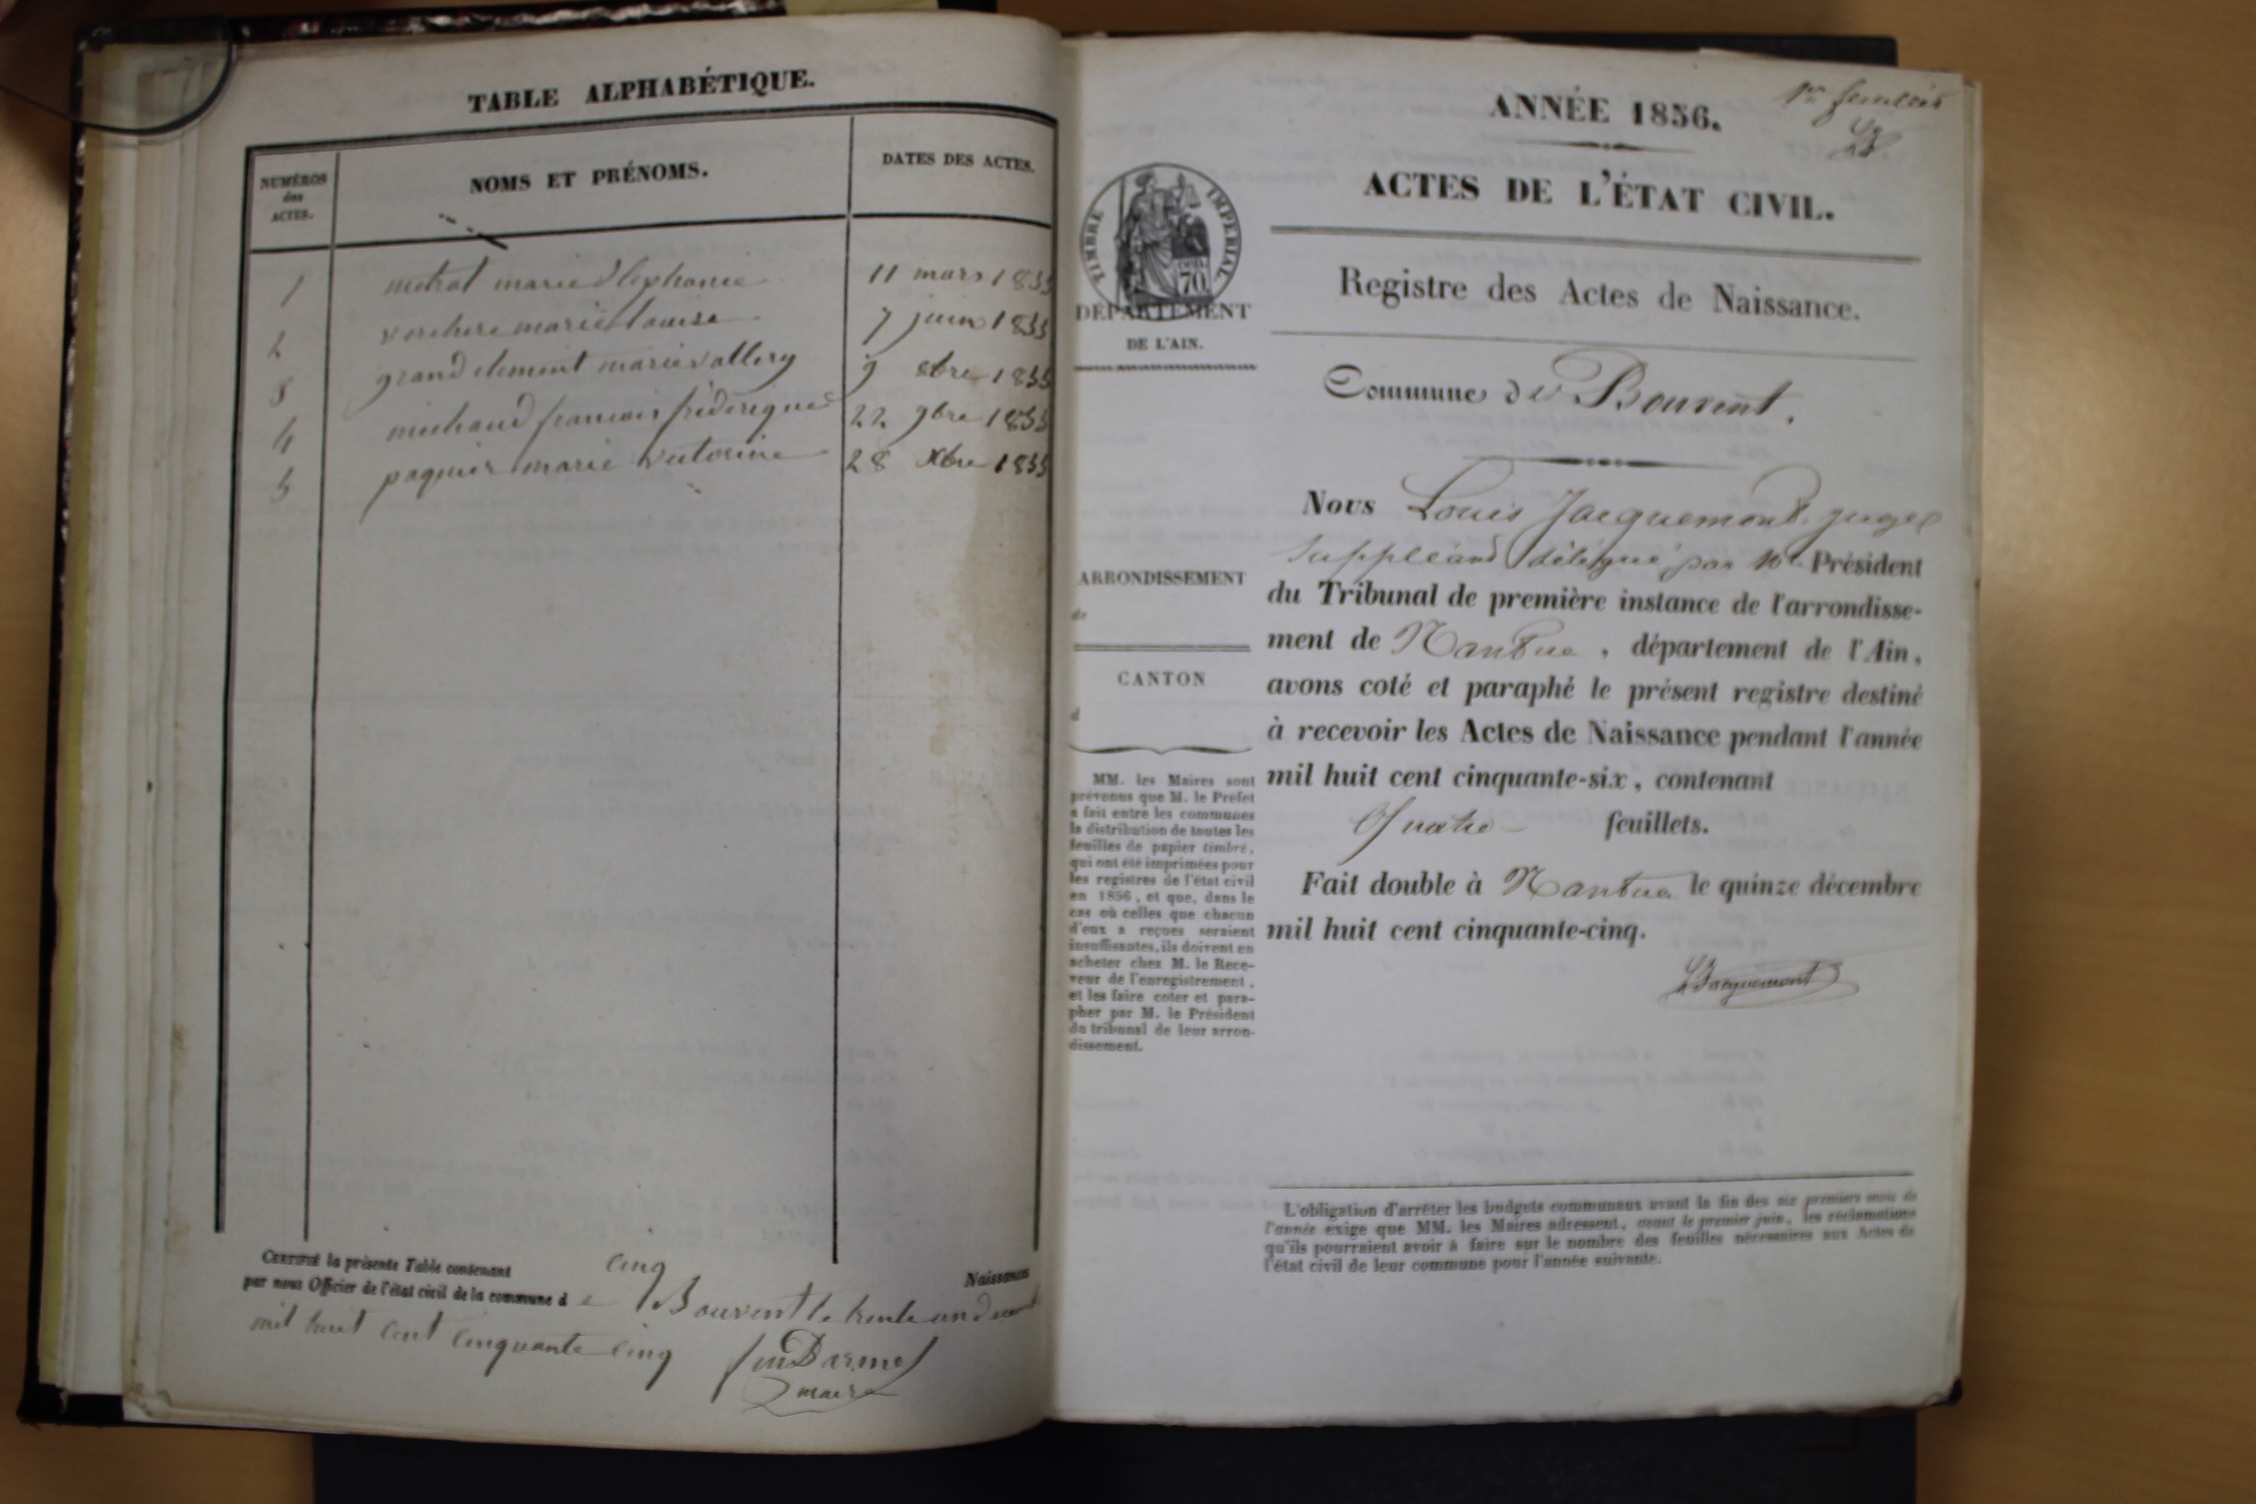 TABLE ALPHABÉTIQUE.
NUMÉROS
des
ACTES.
NOMS ET PRÉNOMS.
DATES DES ACTES.
1 metral marie Stephanie 11 mars 1855
2 verchere marie louise 7 juin 1855
3 grand clement marie vallery 9 8bre 1855
4 michaud francois frederique 22 9bre 1855
5 paquier marie victorine 28 Xbre 1855
CERTIFIÉ la présente Table contenant cinq Naissances
par nous Officier de l'état civil de la commune d e Bouvent le trente un
mil huit cent cinquante cinq
maire
1er feuillet
ANNÉE 1856.
ACTES DE L'ÉTAT CIVIL.
TIMBRE IMPERIAL
70
DÉPARTEMENT
DE L'AIN.
Registre des Actes de Naissance.
Commune de Bouvent.
ARRONDISSEMENT
de
CANTON
d
MM. les Maires sont
prévenus que M. le Préfet
a fait entre les communes
la distribution de toutes les
feuilles de papier timbré,
qui ont été imprimées pour
les registres de l'état civil
en 1856, et que, dans le
cas où celles que chacun
d'eux a reçues seraient
insuffisantes, ils doivent en
acheter chez M. le Rece-
veur de l'enregistrement,
et les faire coter et para-
pher par M. le Président
du tribunal de leur arron-
dissement.
Nous Louis Jacquemont juge
suppléant délégué par Mr Président
du Tribunal de première instance de l'arrondisse-
ment de Nantua, département de l'Ain,
avons coté et paraphé le présent registre destiné
à recevoir les Actes de Naissance pendant l'année
mil huit cent cinquante-six, contenant
Quatre feuillets.
Fait double à Nantua le quinze décembre
mil huit cent cinquante-cinq.
Jacquemont
L'obligation d'arrêter les budgets communaux avant la fin des six premiers mois de
l'année exige que MM. les Maires adressent, avant le premier juin, les réclamations
qu'ils pourraient avoir à faire sur le nombre des feuilles nécessaires aux Actes de
l'état civil de leur commune pour l'année suivante.